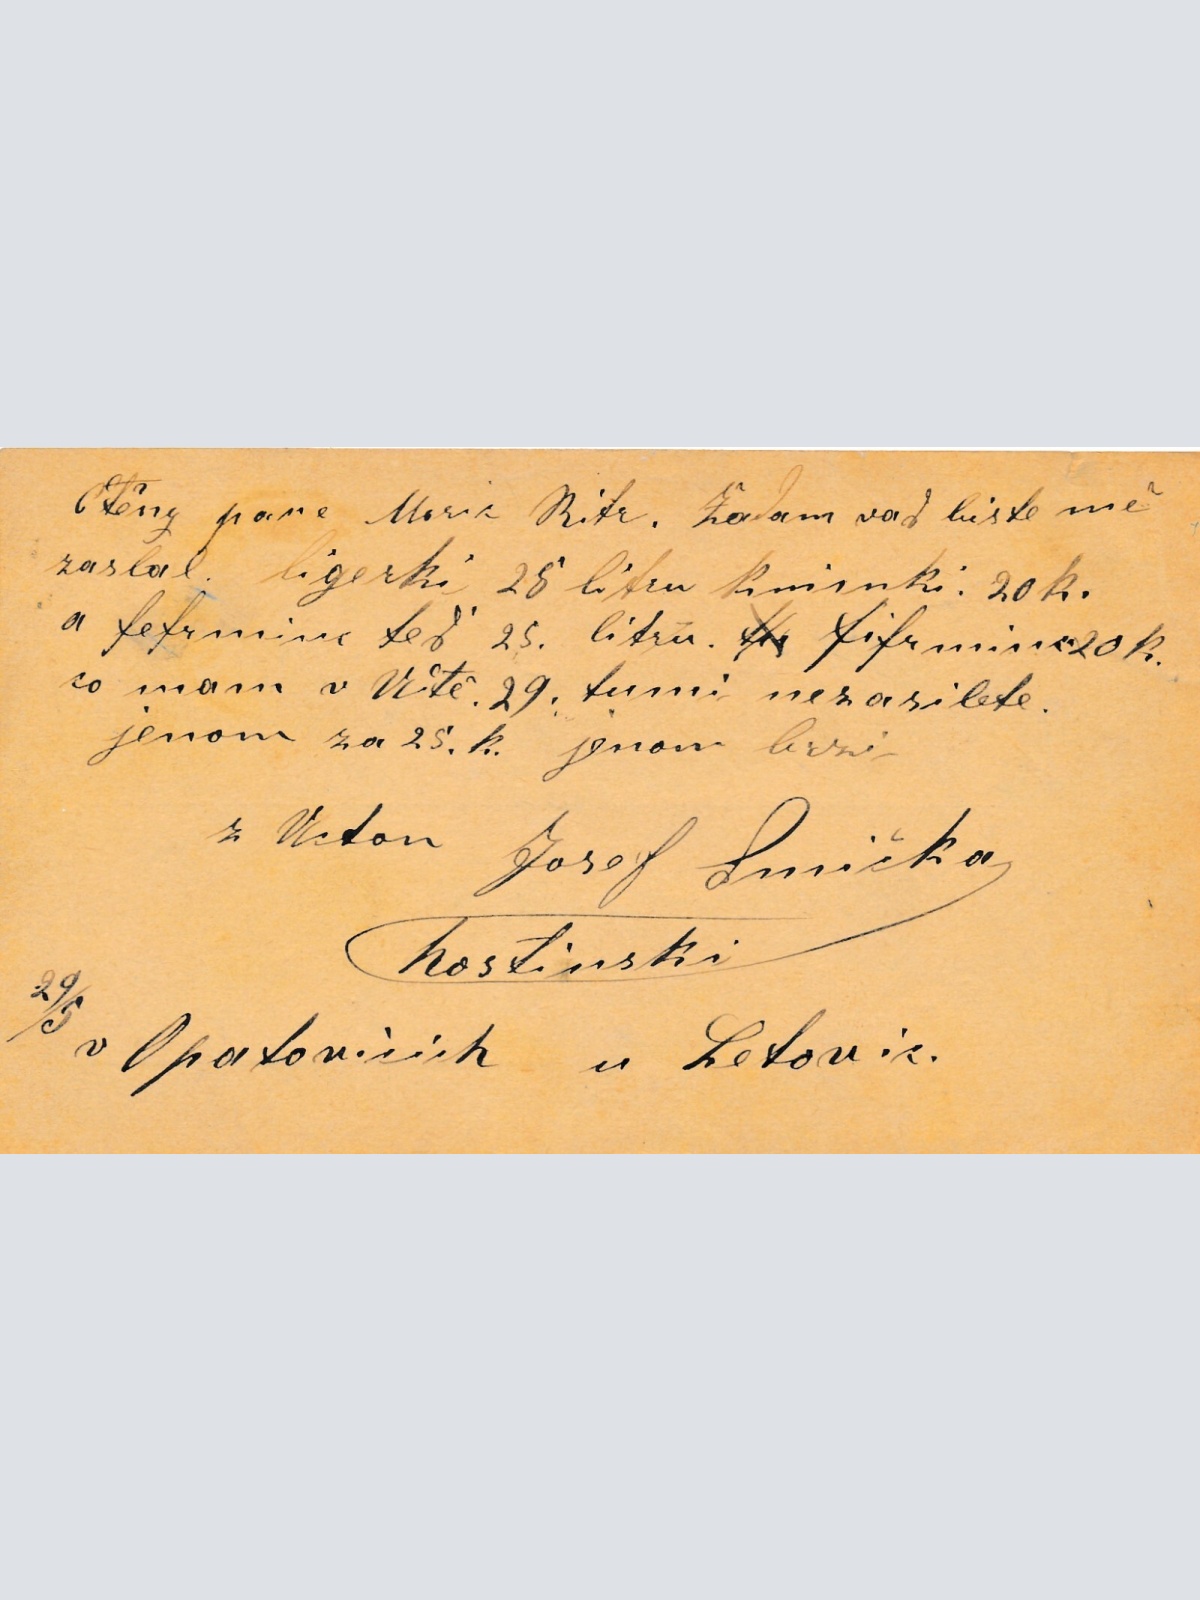 Ctěny pane Moric Ritr. Žadam vaď biste mě
zaslal. ligerki 25 litru kminki. 20 k.
a fefrminc teď 25. litru. fifrminc 20 k.
co mam v Uctě. 29. tumi nezasilete.
jenom za 25. k. jenom brzi
z Ucton Josef Smička
hostinski
29/5
v Opatovicich u Letovic.